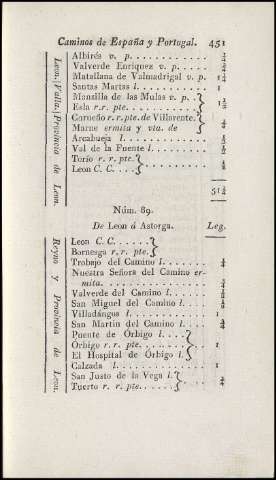 Caminos de España y Portugal. 451
Leon. | Valla. | Provincia de Leon.
Albirés v. p. . . . . . .
Valverde Enriquez v. p. . . . . .
Matallana de Valmadrigal v. p. 1 1/4
Santas Martas l. . . . . . . 1
Mansilla de las Mulas v. p. . }
Esla r. r. pte. . . . . . . } 1 1/2
Carneño r. r. pte. de Villarente. }
Marne ermita y vta. de }
Arcabueja l. . . . . . .
Val de la Fuente l. . . . . . .
Torío r. r. pte. . . . . . . }
Leon C. C. . . . . . . }
51 1/4
Núm. 89.
De Leon á Astorga. Leg.
Reyno y Provincia de Leon.
Leon C. C. . . . . . . }
Bornesga r. r. pte. . . . . . }
Trabajo del Camino l. . . . . .
Nuestra Señora del Camino er-
mita. . . . . . .
Valverde del Camino l. . . . . .
San Miguel del Camino l. . . . .
Villadángos l. . . . . . . 1
San Martin del Camino l. . . . 3/4
Puente de Orbigo l. . . . }
Orbigo r. r. pte. . . . . . . } 1
El Hospital de Orbigo l. }
Calzada l. . . . . . . 1
San Justo de la Vega l. }
Tuerto r. r. pte. . . . . . } 3/4